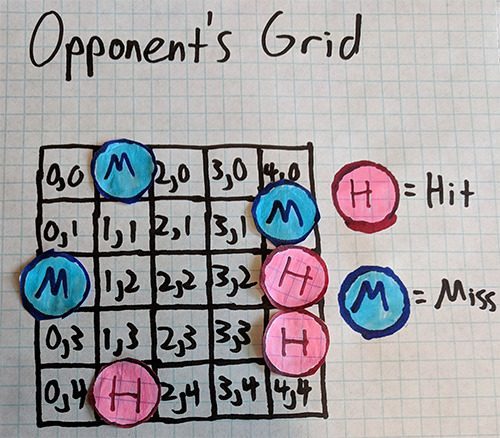 Opponent's Grid
0,0 M 2,0 3,0 4,0
0,1 1,1 2,1 3,1 M
M 1,2 2,2 3,2 H
0,3 1,3 2,3 3,3 H
0,4 H 2,4 3,4 4,4
H = Hit
M = Miss